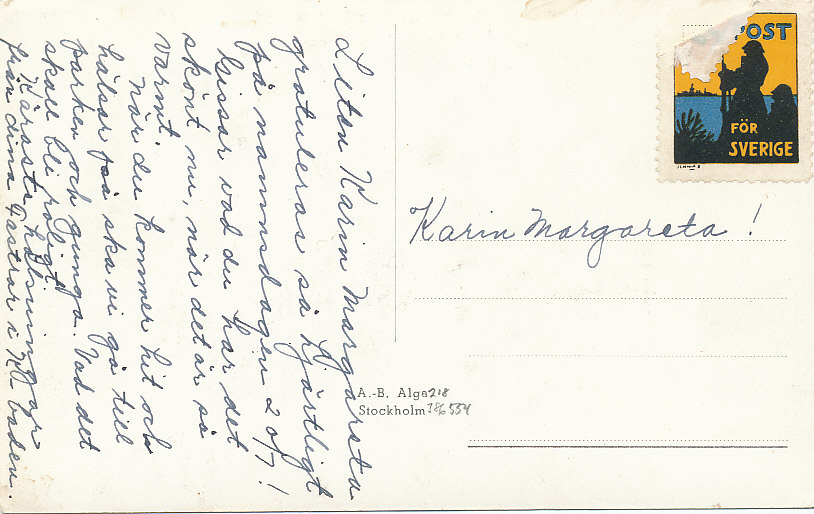 Liten Karin Margareta
gratuleras så hjärtligt
på namnsdagen 20/7!
Gissar vad du har det
skönt nu, när det är så
varmt.
När du kommer hit och
hälsar på ska vi gå till
parken och gunga. Vad det
skall bli roligt!
Käraste hälsningar
från dina Fastrar i N-baden.
POST
FÖR
SVERIGE
Karin Margareta!
A.-B. Alga 218
Stockholm 786554